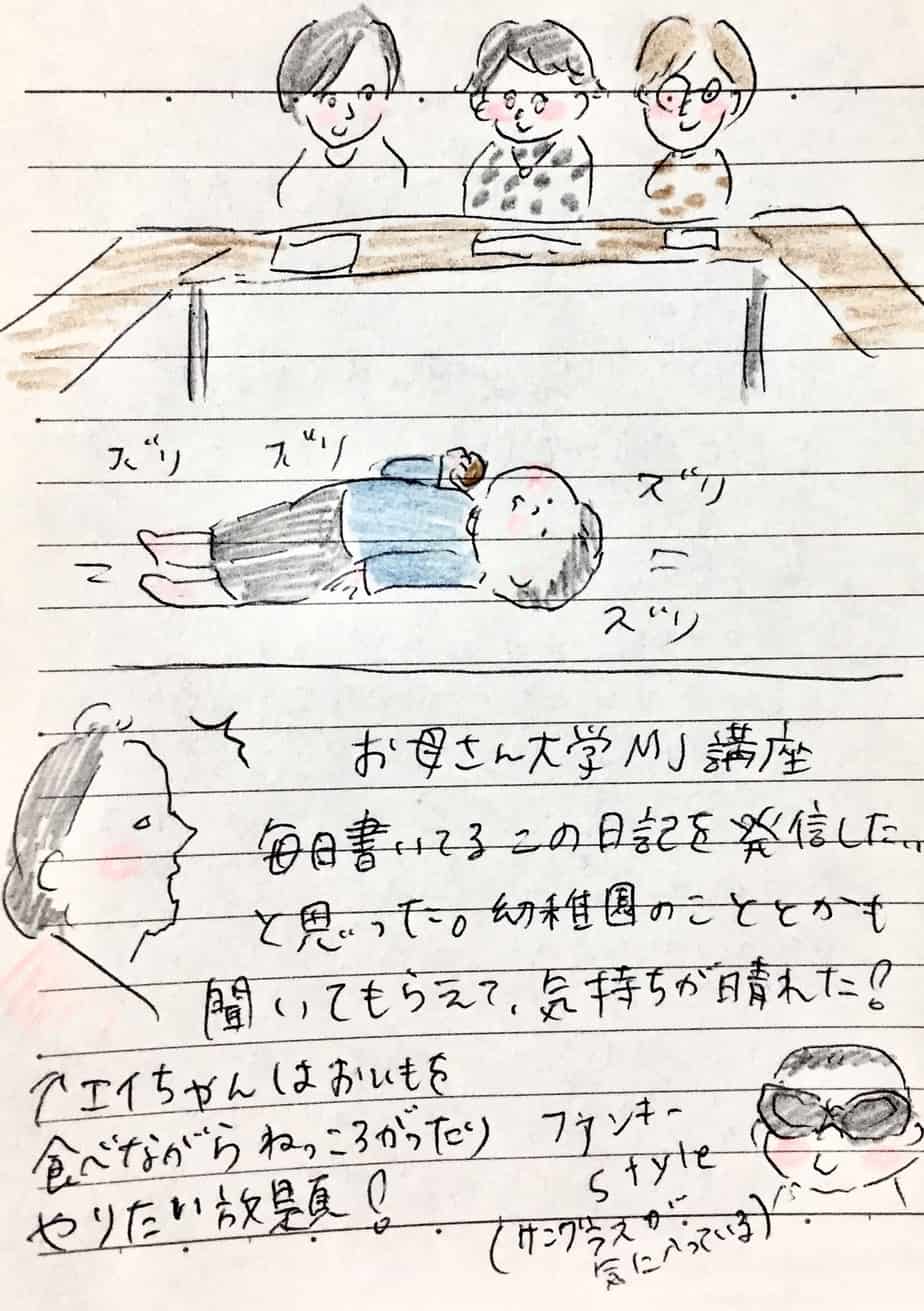 ズリ ズリ ズリ
ズリ
お母さん大学MJ講座
毎日書いてるこの日記を発信したい
と思った。幼稚園のこととかも
聞いてもらえて、気持ちが晴れた!
↑エイちゃんはおいもを
食べながらねっころがったり
やりたい放題!
ファンキー
style
(サングラスが
気に入っている)